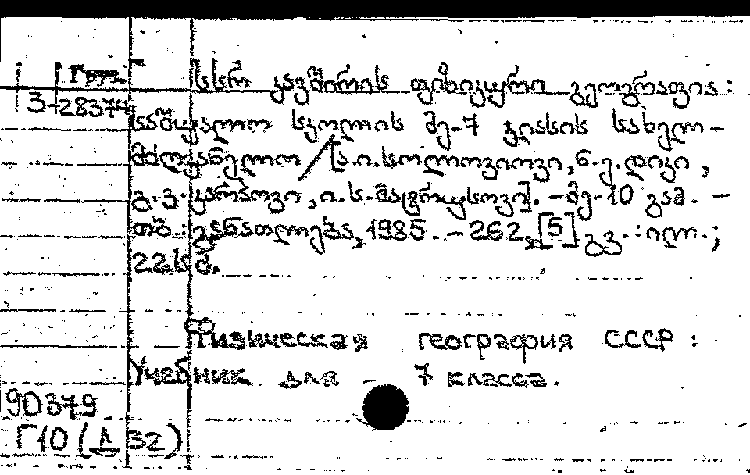 Груз.
3-28374
სსრ კავშირის ფიზიკური გეოგრაფია:
საშუალო სკოლის მე-7 კლასის სახელ-
მძღვანელო / [ა.ი.სოლოვიოვი, ნ.ე.დიკი,
გ.ვ.კარპოვი, ი.ს.მატრუსოვი]. - მე-10 გამ. -
თბ.: განათლება, 1985. - 262, [5] გვ.: ილ.;
22სმ.
Физическая география СССР:
Учебник для - 7 класса.
90379
Г10 (Д 32)